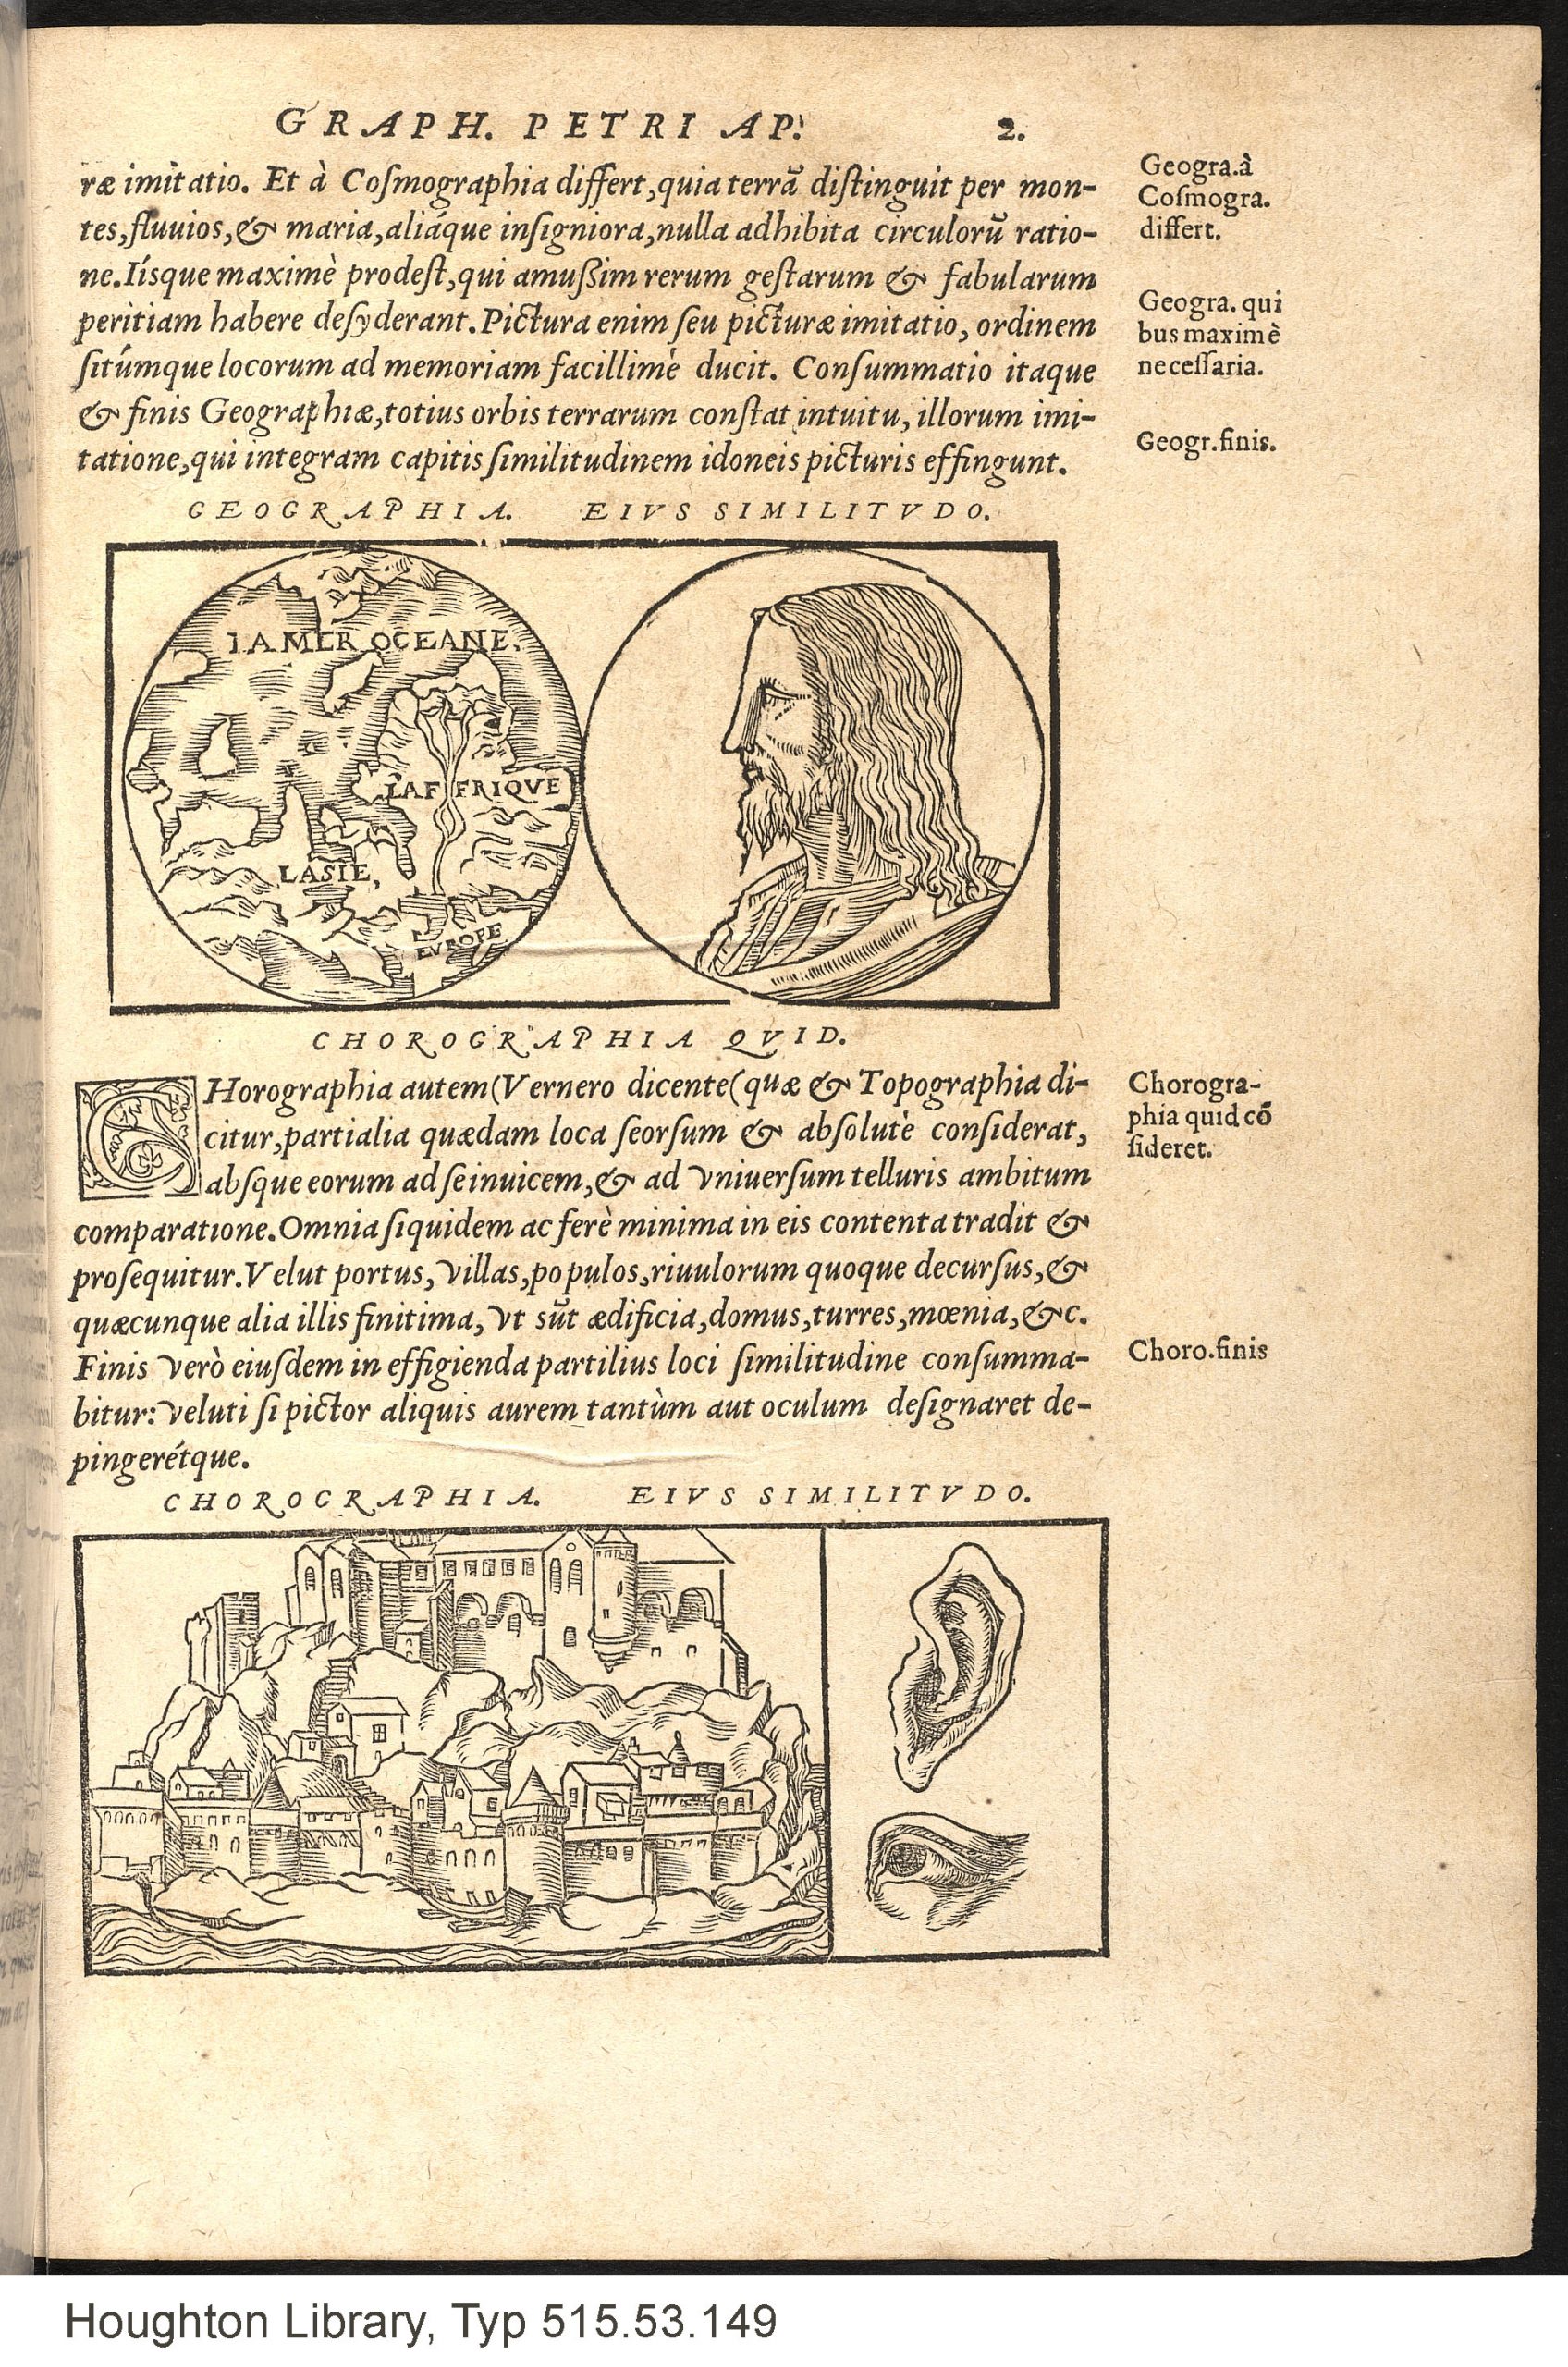 GRAPH. PETRI AP.
2.
ræ imitatio. Et à Coſmographia differt, quia terrā diſtinguit per mon-
tes, fluuios, & maria, aliáque inſigniora, nulla adhibita circulorū ratio-
ne. Iísque maximè prodeſt, qui amußim rerum geſtarum & fabularum
peritiam habere deſyderant. Pictura enim ſeu picturæ imitatio, ordinem
ſitúmque locorum ad memoriam facillimè ducit. Conſummatio itaque
& finis Geographiæ, totius orbis terrarum conſtat intuitu, illorum imi-
tatione, qui integram capitis ſimilitudinem idoneis picturis effingunt.
Geogra. à
Coſmogra.
differt.
Geogra. qui
bus maximè
neceſſaria.
Geogr. finis.
GEOGRAPHIA. EIVS SIMILITVDO.
LA MER OCEANE.
LAFFRIQVE
LASIE,
EVROPE
CHOROGRAPHIA QVID.
CHorographia autem (Vernero dicente( quæ & Topographia di-
citur, partialia quædam loca ſeorſum & abſolutè conſiderat,
abſque eorum ad ſeinuicem, & ad vniuerſum telluris ambitum
comparatione. Omnia ſiquidem ac ferè minima in eis contenta tradit &
proſequitur. Velut portus, villas, populos, riuulorum quoque decurſus, &
quæcunque alia illis finitima, vt sūt ædificia, domus, turres, mœnia, &c.
Finis verò eiuſdem in effigienda partilius loci ſimilitudine conſumma-
bitur: veluti ſi pictor aliquis aurem tantùm aut oculum deſignaret de-
pingerétque.
Chorogra-
phia quid cō
ſideret.
Choro. finis
CHOROGRAPHIA. EIVS SIMILITVDO.
Houghton Library, Typ 515.53.149